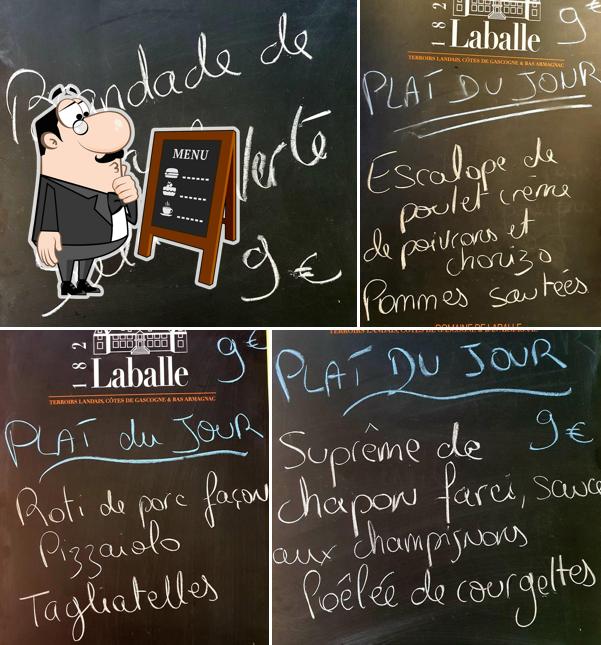 Brandade de
Verte
9€
MENU
182
Laballe
9€
TERROIRS LANDAIS, CÔTES DE GASCOGNE & BAS ARMAGNAC
PLAT DU JOUR
Escalope de
poulet crème
de poivrons et
chorizo
Pommes sautées
DOMAINE DE LABALLE
182
Laballe
9€
TERROIRS LANDAIS, CÔTES DE GASCOGNE & BAS ARMAGNAC
PLAT du JOUR
Roti de porc façon
Pizzaiolo
Tagliatelles
TERROIRS LANDAIS, CÔTES DE GASCOGNE & BAS ARMAGNAC
PLAT DU JOUR
9€
Suprême de
chapon farci, sauce
aux champignons
Poêlée de courgettes